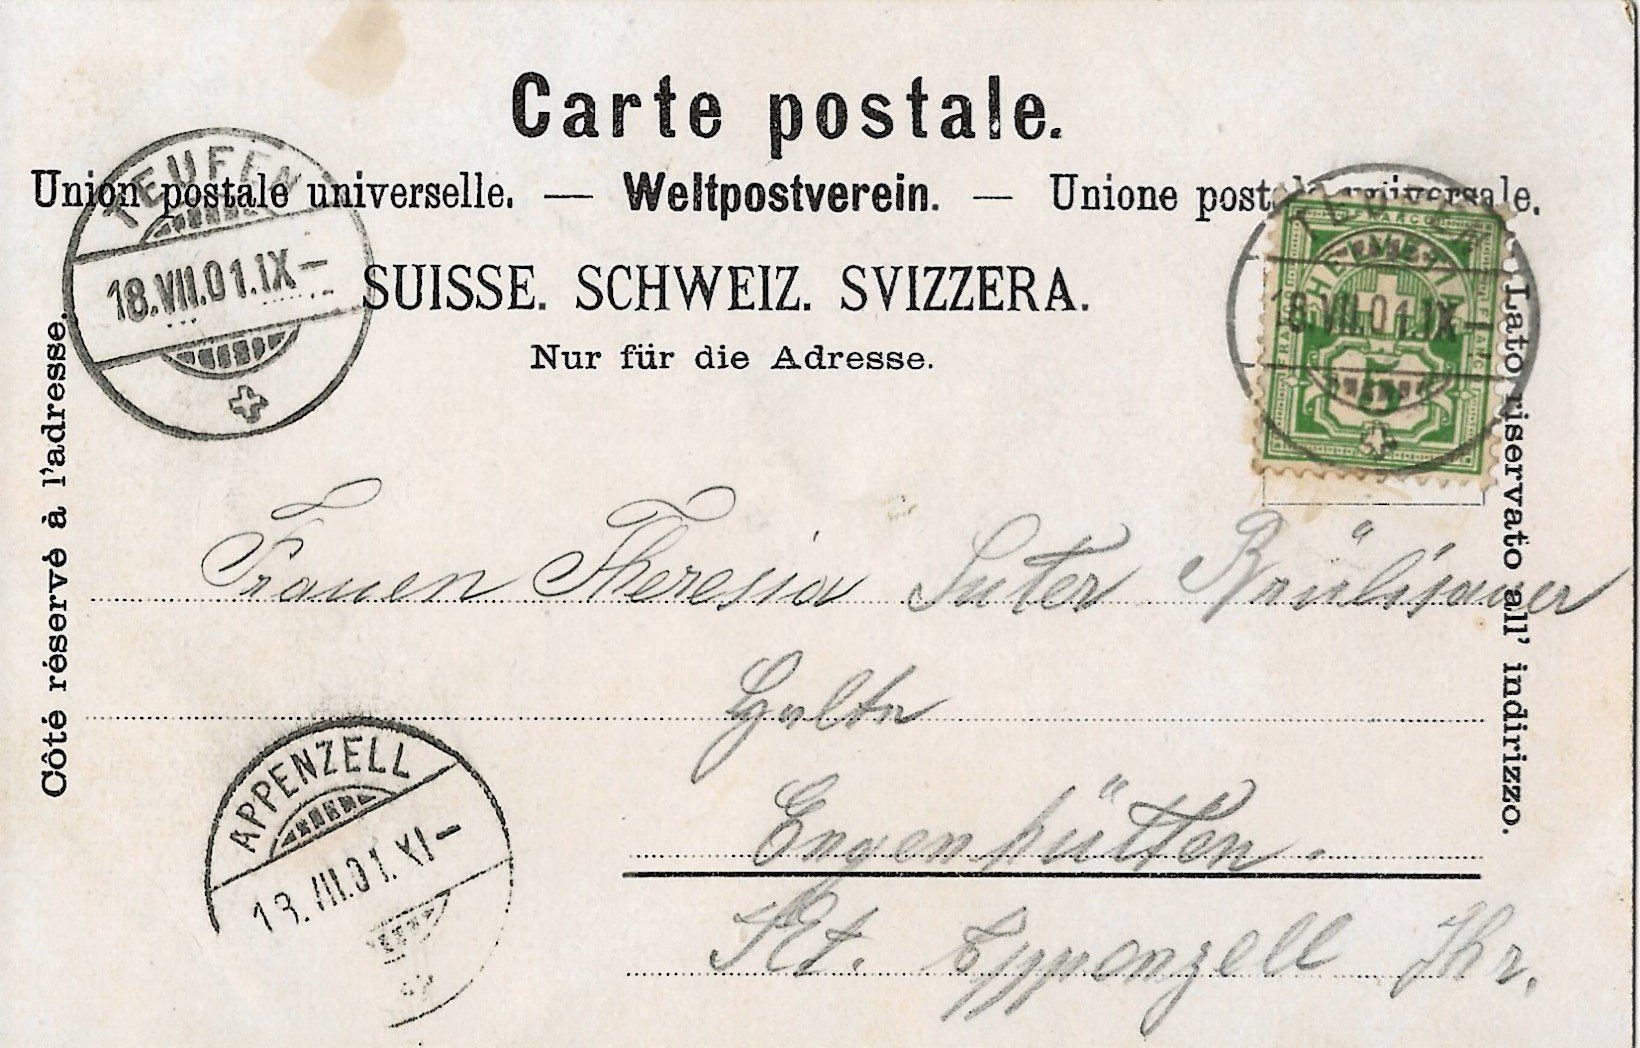 Carte postale.
Union postale universelle. — Weltpostverein. — Unione postale universale.
SUISSE. SCHWEIZ. SVIZZERA.
Nur für die Adresse.
Côté réservé à l'adresse.
Lato riservato all' indirizzo.
TEUFEN
18.VII.01.IX–
TEUFEN
18.VII.01.IX–
FRANCO
HELVETIA
5
Frauen Theresia Suter Brülisauer
Engenhütten.
Kt. Appenzell Ihr.
APPENZELL
18.VII.01.XI–